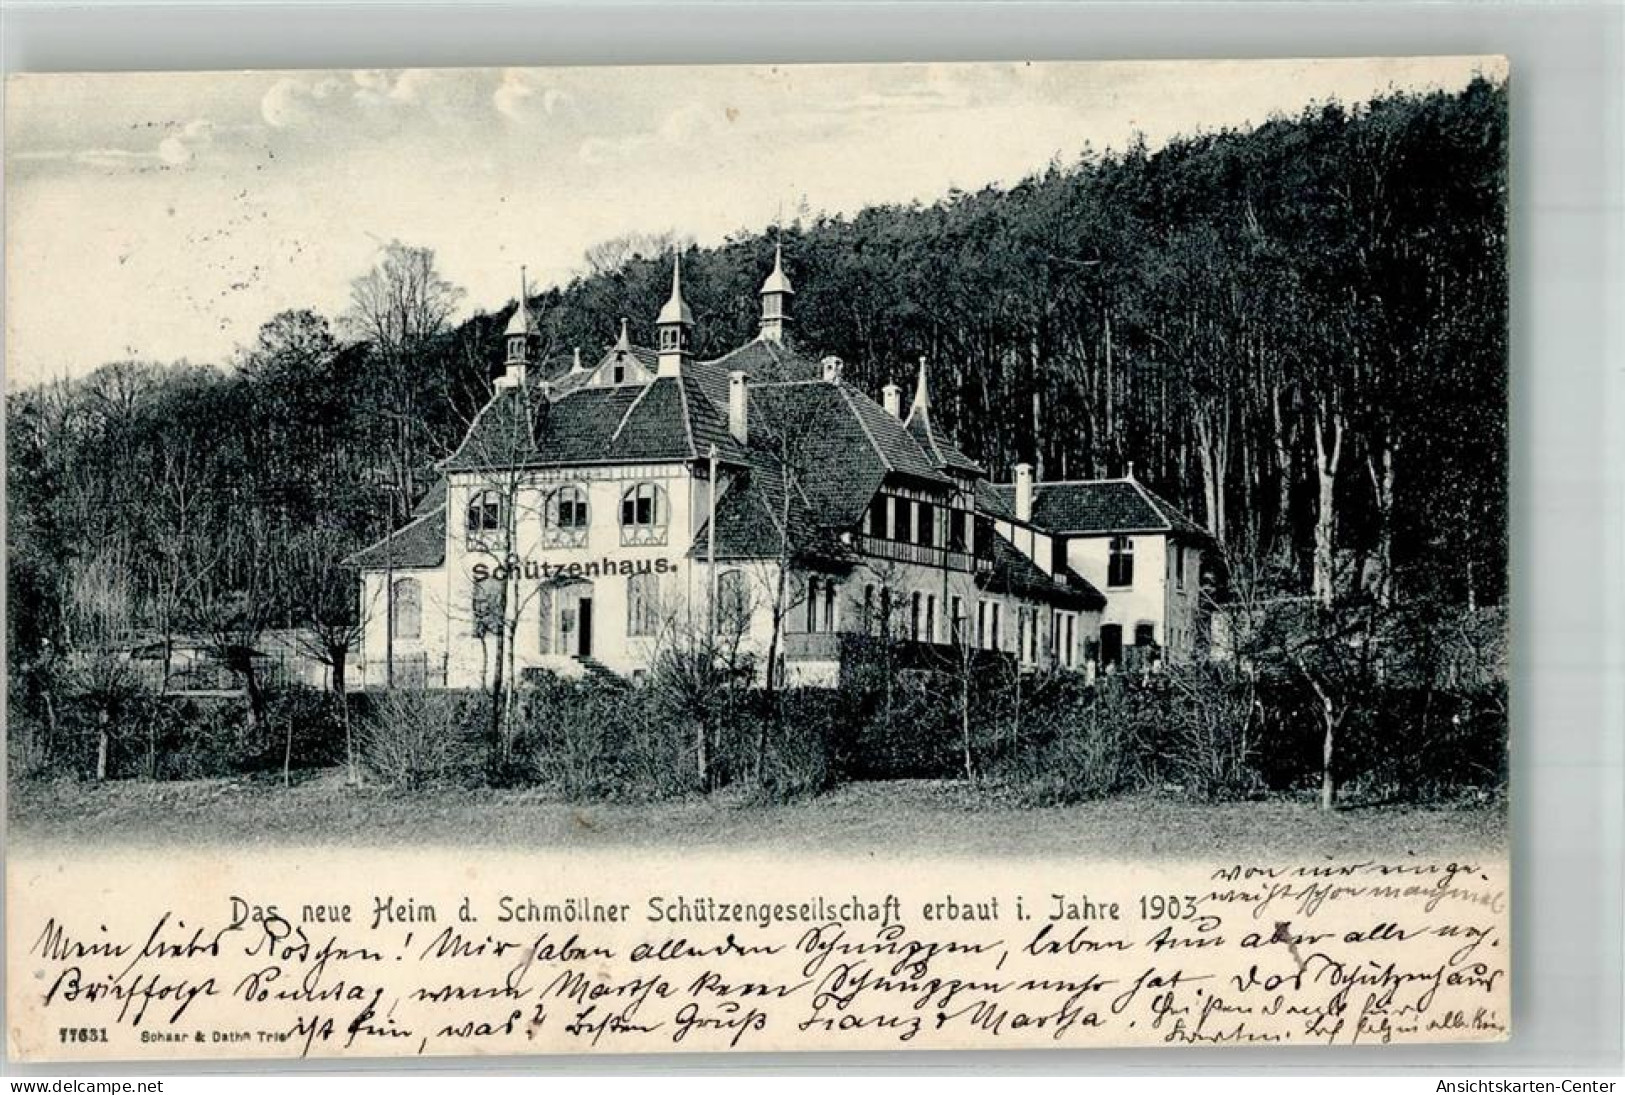 Schützenhaus.
Das neue Heim d. Schmöllner Schützengesellschaft erbaut i. Jahre 1903
von mir einge-
weiht schon manchmal
Mein liebes Röschen! Wir haben alle den Schnuppen, leben tun aber alle noch.
Brief folgt Sonntag, wenn Martha keen Schnuppen mehr hat. Das Schützenhaus
ist fein, was? Besten Gruß Franz & Martha.
Karten. alle
77631 Schaar & Dathe Trie
delcampe.net
Ansichtskarten-Center